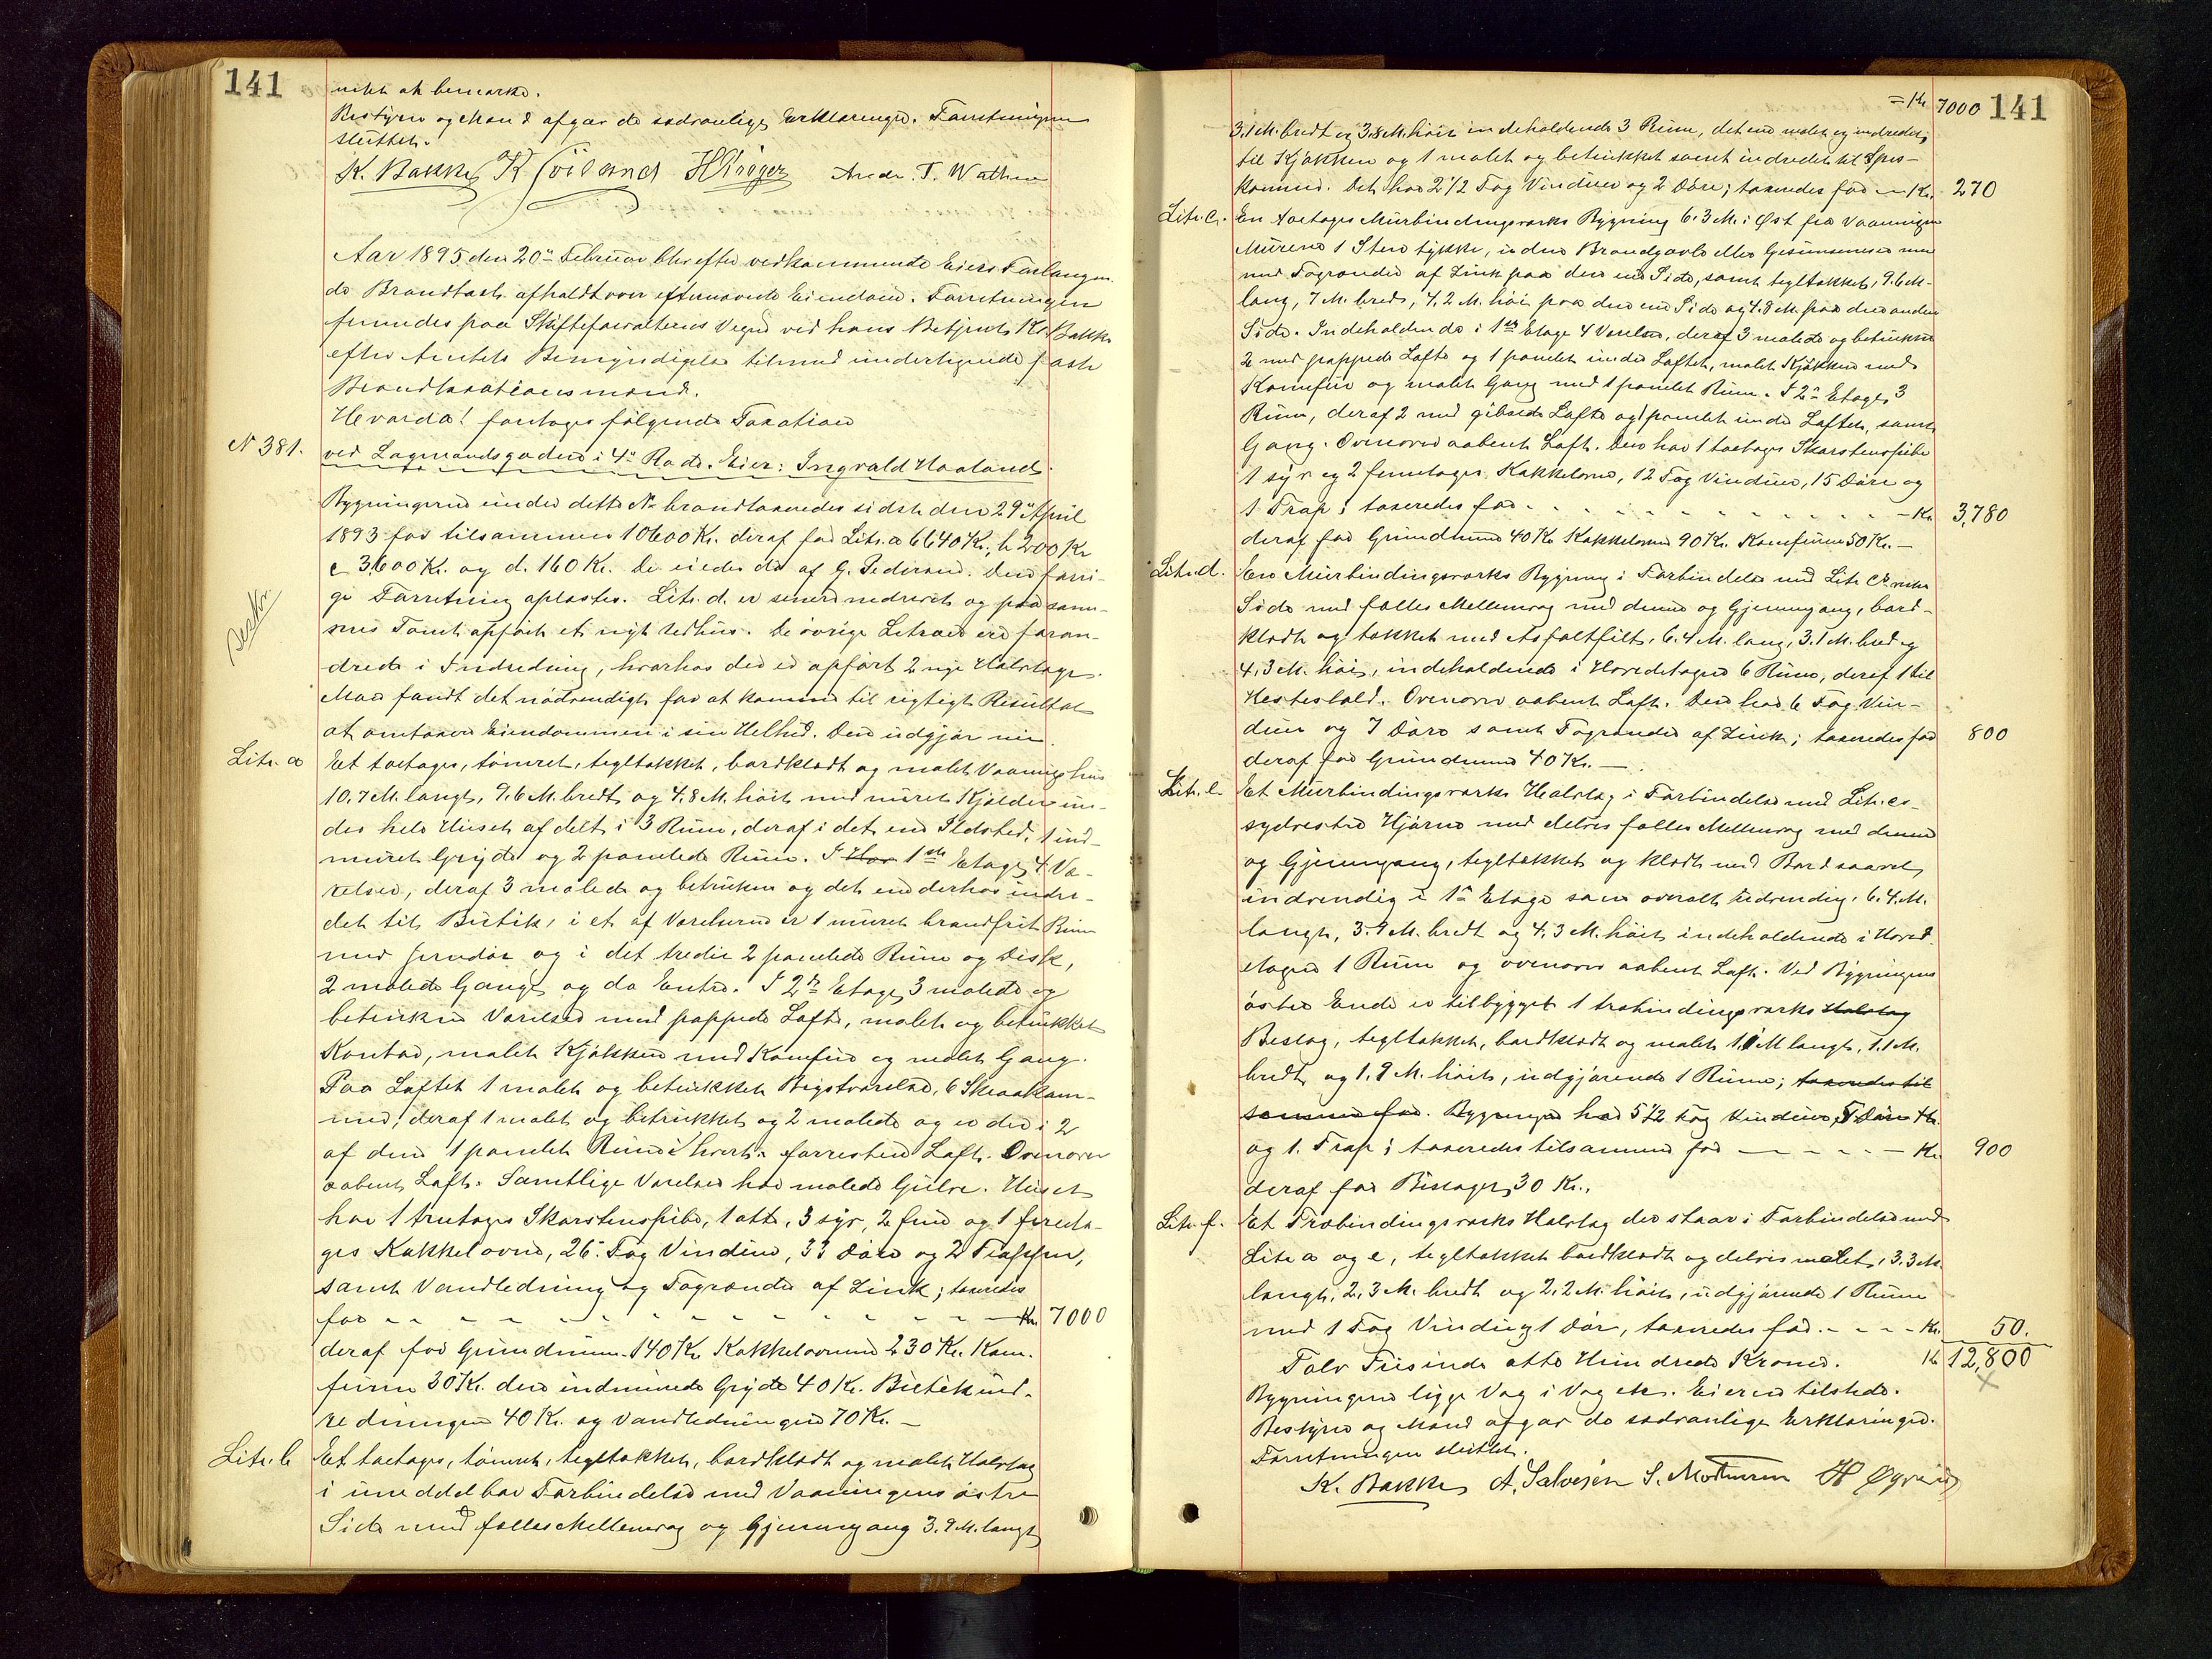 141
intet at bemærke.
Bestyrer og Mænd afgav de sædvanlige Erklæringer. Forretningen
sluttet.
K. Bakke Andr. T. Wathne
Aar 1895 den 20de Februar blev efter vedkommende Eiers Forlangen-
de Brandtaxt afholdt over efternævnte Eiendom. Forretningen
fremmedes paa Skifteforvalterens Vegne ved hans Betjent K. Bakke
efter Amtets Bemyndigelse tilmed undertegnede faste
Brandtaxationsmænd.
Hvorda! foretoges følgende Taxation
N 381.
ved Lagmandsgaden i 4de Rode. Eier: Ingvald Haaland.
Bygningerne under dette No brandtaxeredes sidste den 29de April
1893 for tilsammen 10600 Kr. deraf for Litr. a 6640 Kr., b 200 Kr
c 3600 Kr. og d. 160 Kr. De eiedes da af G. Pedersen. Den forri-
ge Forretning oplæstes. Litr. d. er senere nedrevet og paa sam-
mes Tomt opført et nyt Udhus. De øvrige Litraer ere foran-
drede i Indredning, hvorhos der er opført 2 nye Halvtage.
Man fandt det nødvendigt for at komme til rigtigt Resultat
at omtaxere Eiendommen i sin Helhed. Den udgjør nu:
Litr. a
Et toetages, tømret, tegltækket, bordklædt og malet Vaaningshus
10.7 M. langt, 9.6 M. bredt og 4.8 M. høit med muret Kjælder un-
der hele Huset afdelt i 3 Rum, deraf i det ene Ildsted, 1 ind-
muret Gryde og 2 panelede Rum. I Hov 1ste Etage 4 Væ-
relser, deraf 3 malede og betrukne og det ene derhos indre-
det til Butik, i et af Værelserne er 1 muret brandfrit Rum
med Jerndør og i det tredie 2 panelede Rum og Disk,
2 malede Gange og do Entre. I 2den Etage 3 malede og
betrukne Værelser med pappede Lofte, malet og betrukket
Kontor, malet Kjøkken med Komfur og malet Gang.
Paa Loftet 1 malet og betrukket Kvistværelse, 6 Skraakam-
mer, deraf 1 malet og betrukket og 2 malede og er der i 2
af dem 1 panelet Rum i hvert. forresten Loft. Ovenover
aabent Loft. Samtlige Værelser har malede Gulve. Huset
har 1 treetages Skorstenspibe, 1 otte, 3 syv, 2 fem og 1 fireta-
ges Kakkelovne, 26 Fag Vinduer, 33 Døre og 2 Trapper,
samt Vandledning og Tagrender af Zink; taxeredes
for - - - - - - - - Kr. 7000
deraf for Grundmur 140 Kr. Kakkelovnene 230 Kr. Kom-
furene 30 Kr. den indmurede Gryde 40 Kr. Butikind-
redningen 40 Kr. og Vandledningen 70 Kr. —
Litr. b
Et toetages, tømret, tegltækket, bordklædt og malet Halvtag
i umiddelbar Forbindelse med Vaaningens østre
Side med fælles Mellemvæg og Gjennemgang 3.9 M. langt
141
= Kr. 7000
3.1 M. bredt og 3.8 M. høit indeholdende 3 Rum, det ene malet og indredet
til Kjøkken og 1 malet og betrukket samt indredet til Spis-
kammer. Det har 2 1/2 Fag Vinduer og 2 Døre; taxeredes for — Kr. 270
Litr. c.
En toetages Murbindingsværks Bygning 6.3 M. i Øst fra Vaaningen
Murene 1 Sten tykke, uden Brandgavle eller Gesimsmure
med Tagrender af Zink paa den ene Side, samt tegltækket, 9.6 M.
lang, 7 M. bred, 4.2 M. høi paa den ene Side og 4.8 M. paa den anden
Side. Indeholdende i 1ste Etage 4 Værelser, deraf 3 malede og betrukne
2 med pappede Lofte og 1 panelet under Loftet, malet Kjøkken med
Komfur og malet Gang med 1 panelet Rum. I 2den Etage 3
Rum, deraf 2 med gibsede Lofte og 1 panelet under Loftet, samt
Gang. Ovenover aabent Loft. Den har 1 toetages Skorstenspibe
1 syv og 2 femetages Kakkelovne, 12 Fag Vinduer, 15 Døre og
1 Trap; taxeredes for - - - - - - - - Kr. 3,780
deraf for Grundmur 40 Kr. Kakkelovne 90 Kr. Komfurene 50 Kr. —
Litr. d.
En Murbindingsværks Bygning i Forbindelse med Litr. c's
Side med fælles Mellemvæg med denne og Gjennemgang, bord-
klædt og tækket med Asfaltfilt, 6.4 M. lang, 3.1 M. bred og
4.3 M. høi, indeholdende i Hovedetagen 6 Rum, deraf 1 til
Hestestald. Ovenover aabent Loft. Den har 6 Fag Vin-
duer og 7 Døre samt Tagrender af Zink; taxeredes for 800
deraf for Grundmur 40 Kr. —
Litr. e.
Et Murbindingsværks Halvtag i Forbindelse med Litr. c's
sydvestre Hjørne med delvis fælles Mellemvæg med denne
og Gjennemgang, tegltækket og klædt med Bord saavel
indvendig i 1ste Etage som overalt udvendig, 6.4 M.
langt, 3.9 M. bredt og 4.3 M. høit, indeholdende i Hoved-
etagen 1 Rum og ovenover aabent Loft. Ved Bygningens
østre Ende er tilbygget 1 træbindingsværks Halvtag
Bislag, tegltækket, bordklædt og malet 1.1 M langt, 1.1 M.
bredt og 1.9 M. høit, udgjørende 1 Rum; taxeredes til
sammen for. Bygningen har 5 1/2 Fag Vinduer, 5 Døre Kr.
og 1. Trap; taxeredes tilsammen for — - - - — Kr. 900
deraf for Bislaget 30 Kr..
Litr. f.
Et Træbindingsværks Halvtag der staar i Forbindelse med
Litr. a og e, tegltækket bordklædt og delvis malet, 3.3 M.
langt, 2.3 M. bredt og 2.2 M. høit, udgjørende 1 Rum
med 1 Fag Vindu og 1 Dør, taxeredes for - - - - Kr. 50.
Tolv Tusinde otte Hundrede Kroner. Kr 12,800
Bygningerne ligge Væg i Væg etc. Eieren tilstede.
Bestyrer og Mænd afgav de sædvanlige Erklæringer.
Forretningen sluttet.
K. Bakke A. Salvesen S. Mortensen